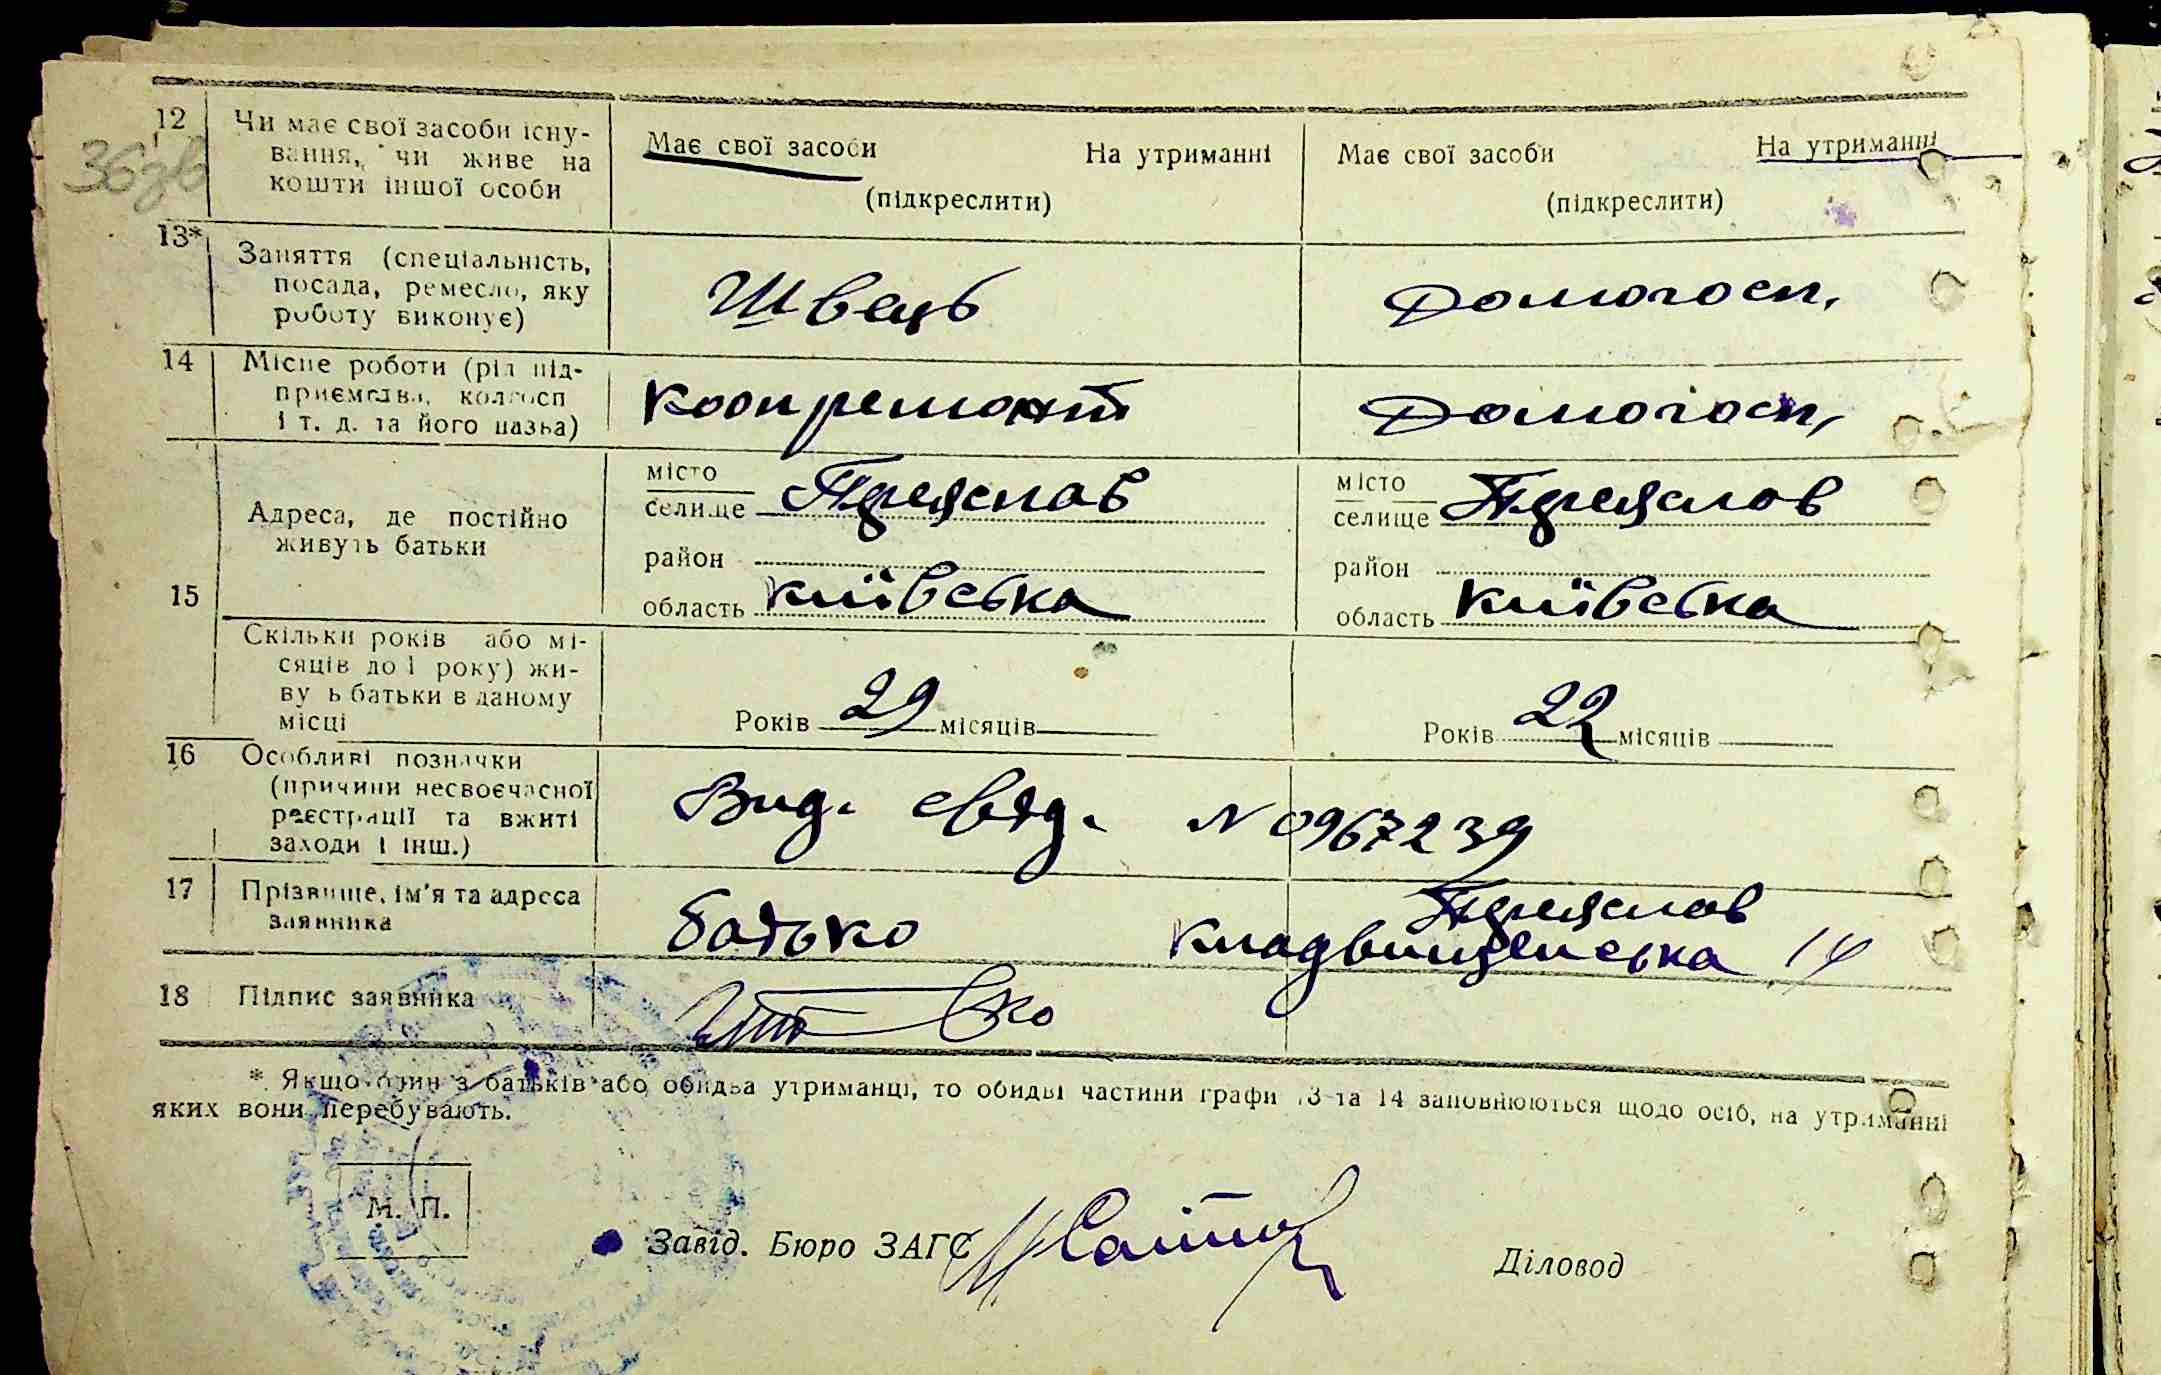 36зв
12 Чи має свої засоби існу-
вання, чи живе на
кошти іншої особи
Має свої засоби На утриманні
(підкреслити)
Має свої засоби На утриманні
(підкреслити)
13* Заняття (спеціальність,
посада, ремесло, яку
роботу виконує)
Швець
Домогосп.
14 Місце роботи (рід під-
приємства, колгосп
і т. д. та його назва)
Коопремонт
Домогосп.
15 Адреса, де постійно
живуть батьки
місто
селище Переяслав
район
область Київська
місто
селище Переяслов
район
область Київська
Скільки років або мі-
сяців до 1 року) жи-
ву ь батьки в даному
місці
Років 29 місяців
Років 22 місяців
16 Особливі позначки
(причини несвоєчасної
реєстрації та вжиті
заходи і інш.)
Вид. свід. N 0967239
17 Прізвище, ім'я та адреса
заявника
батько Переяслов
Кладвищенська 14
18 Підпис заявника
* Якщо один з батьків або обидва утриманці, то обидві частини графи 13 та 14 заповнюються щодо осіб, на утриманні
яких вони перебувають.
М. П.
Завід. Бюро ЗАГС
Діловод